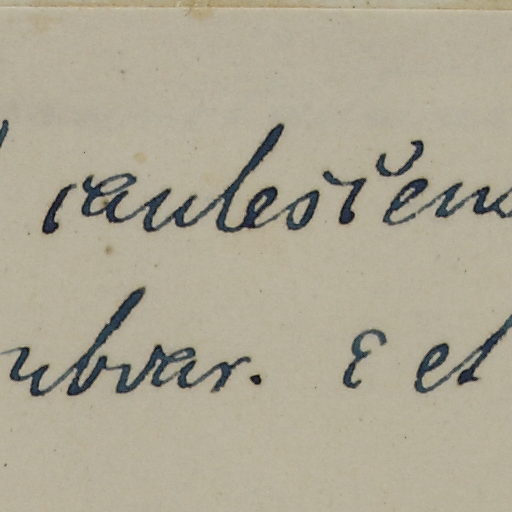 caulesčens
ubvar. ε et